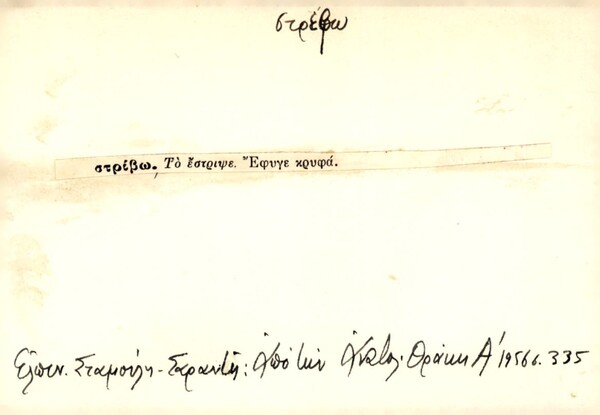 στρέφω
στρέβω. Τὸ ἔστριψε. Ἔφυγε κρυφά.
Ἐλπιν. Σταμούλη - Σαραντῆ: Ἀπὸ τὴν Ἀνατολ. Θράκη Α' 1956 σ. 335